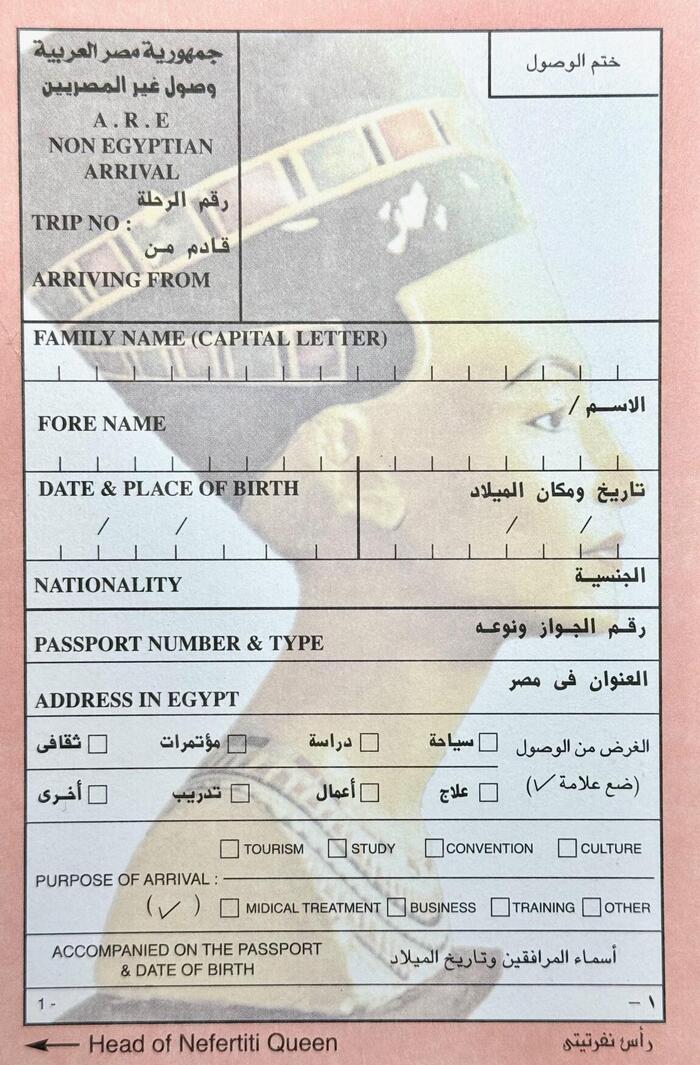 جمهورية مصر العربية
وصول غير المصريين
A . R . E
NON EGYPTIAN
ARRIVAL
رقم الرحلة
TRIP NO :
قادم من
ARRIVING FROM
ختم الوصول
FAMILY NAME (CAPITAL LETTER)
الاسم /
FORE NAME
DATE & PLACE OF BIRTH تاريخ ومكان الميلاد
/ / / /
الجنسية
NATIONALITY
رقم الجواز ونوعه
PASSPORT NUMBER & TYPE
العنوان فى مصر
ADDRESS IN EGYPT
الغرض من الوصول سياحة دراسة مؤتمرات ثقافى
(ضع علامة ✓) علاج أعمال تدريب أخرى
TOURISM STUDY CONVENTION CULTURE
PURPOSE OF ARRIVAL :
(✓) MIDICAL TREATMENT BUSINESS TRAINING OTHER
ACCOMPANIED ON THE PASSPORT
& DATE OF BIRTH
أسماء المرافقين وتاريخ الميلاد
1 - ١ –
Head of Nefertiti Queen رأس نفرتيتى